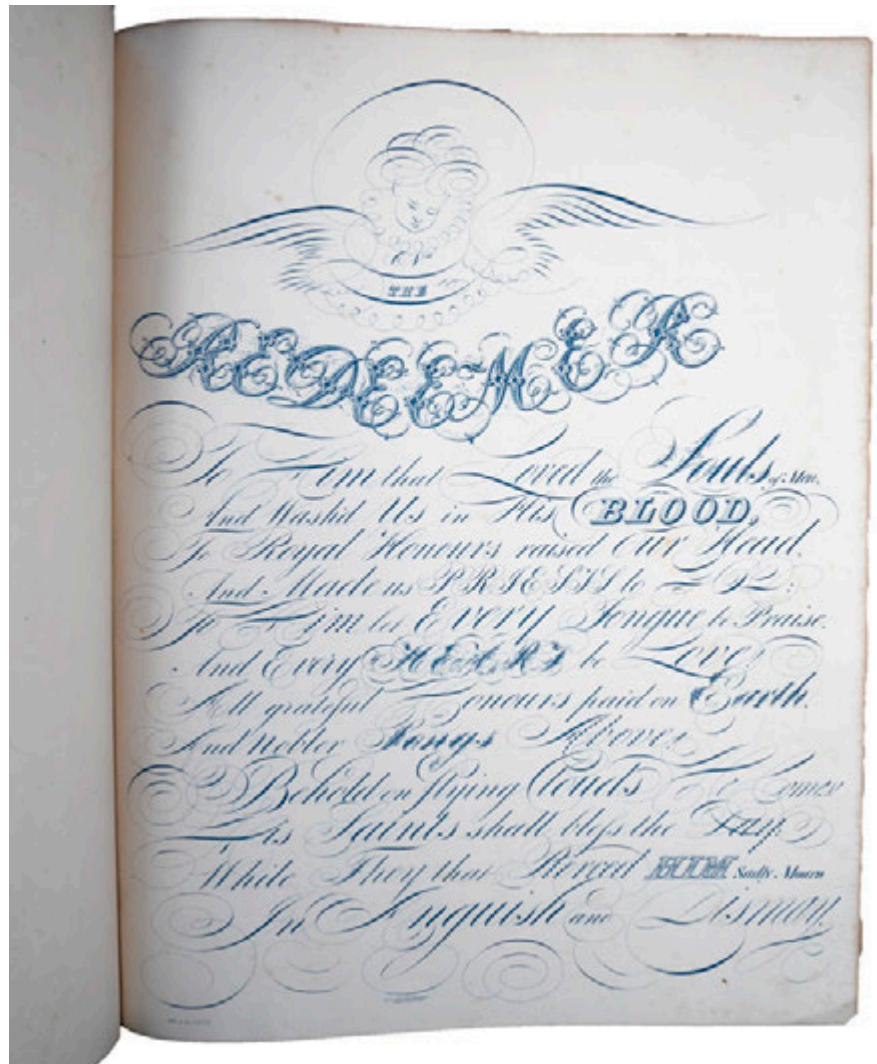 ON
THE
REDEEMER
To Him that Loved the Souls of Men,
And Wash'd Us in His BLOOD,
To Royal Honours raised Our Head,
And Made us PRIESTS to
To Him let Every Tongue be Praise.
And Every HEART be Love!
All grateful Honours paid on Earth,
And Nobler Songs Above!
Behold on flying Clouds He Comes
His Saints shall bleſs the Day,
While They that Pierced HIM Sadly Mourn
In Anguish and Dismay.